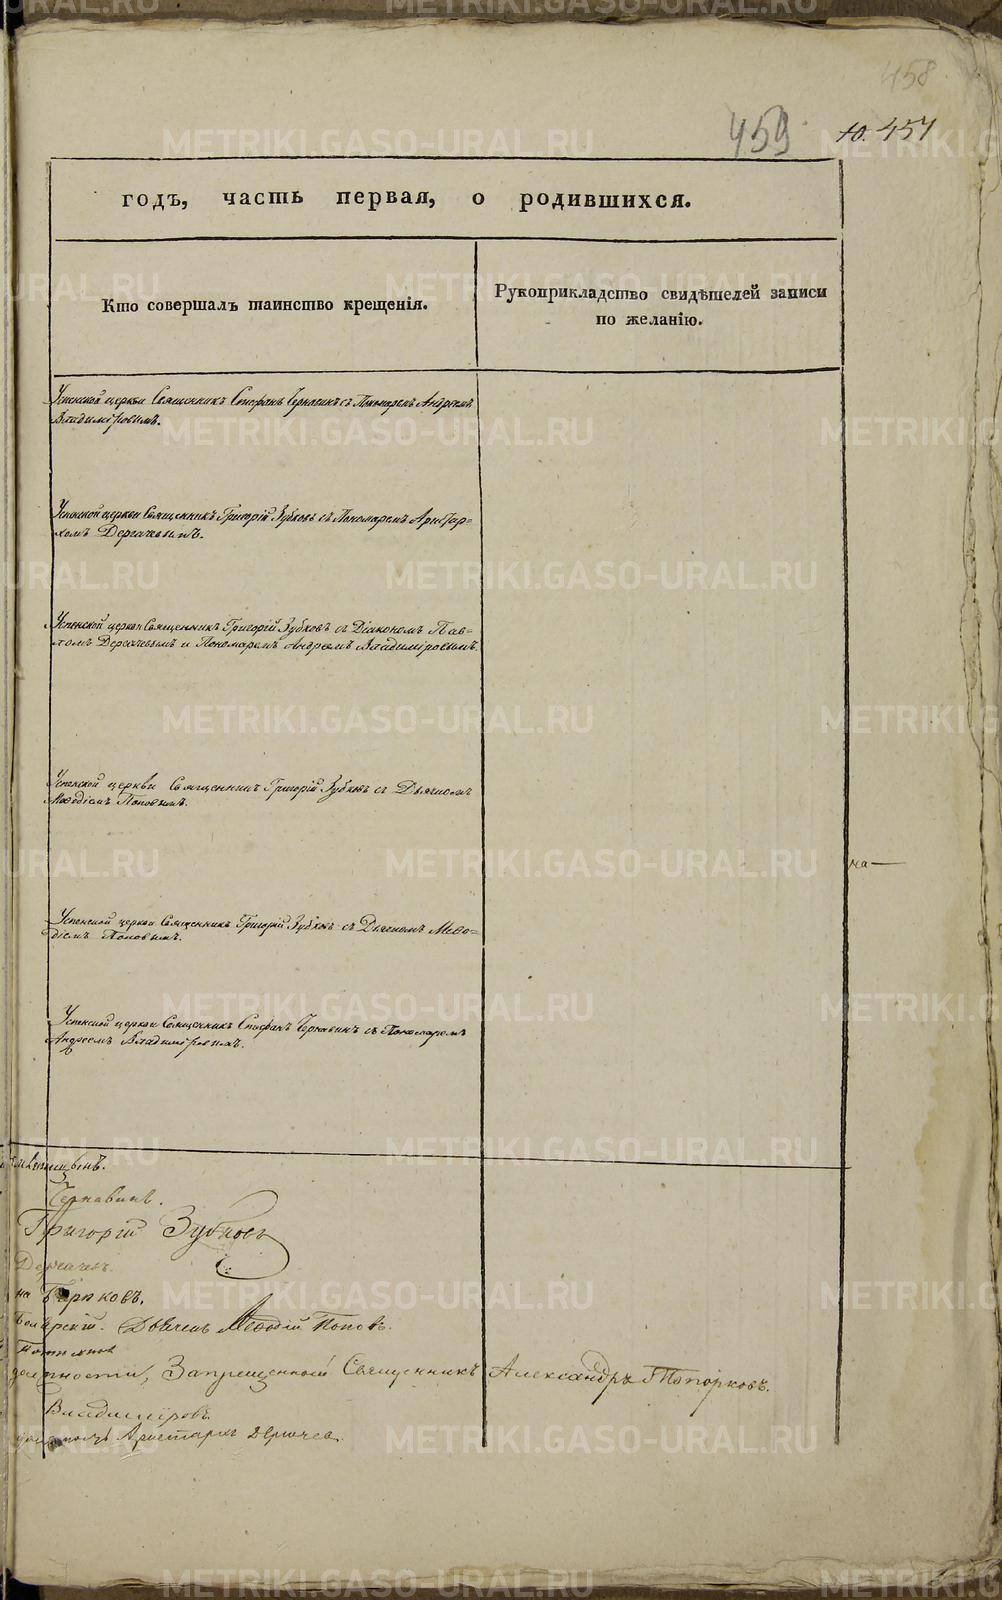 458
459
10. 457
годъ, часть первая, о родившихся.
Кто совершалъ таинство крещенія.
Рукоприкладство свидѣтелей записи
по желанію.
Успенской церкви Священникъ Спифанъ Чернавинъ съ Пономаремъ Андреемъ
Владиміровымъ.
Успенской церкви Священникъ Григорій Зубковъ съ Пономаремъ Аристар-
хомъ Дергачевымъ.
Успенской церкви Священникъ Григорій Зубковъ съ Діакономъ Пав-
ломъ Дергачевымъ и Пономаремъ Андреемъ Владиміровымъ.
Успенской церкви Священникъ Григорій Зубковъ съ Дьячкомъ
Меѳодіемъ Поповымъ.
на —
Успенской церкви Священникъ Григорій Зубковъ съ Дьячкомъ Меѳо-
діемъ Поповымъ.
Успенской церкви Священникъ Спифанъ Чернавинъ съ Пономаремъ
Андреемъ Владиміровымъ.
Чернавинъ.
Григорій Зубковъ
Дергачевъ.
Дьячекъ Меѳодій Поповъ.
должности, Запрещенной Священникъ Александръ Топорковъ.
Владиміровъ.
Аристархъ Дергачевъ.
METRIKI.GASO-URAL.RU